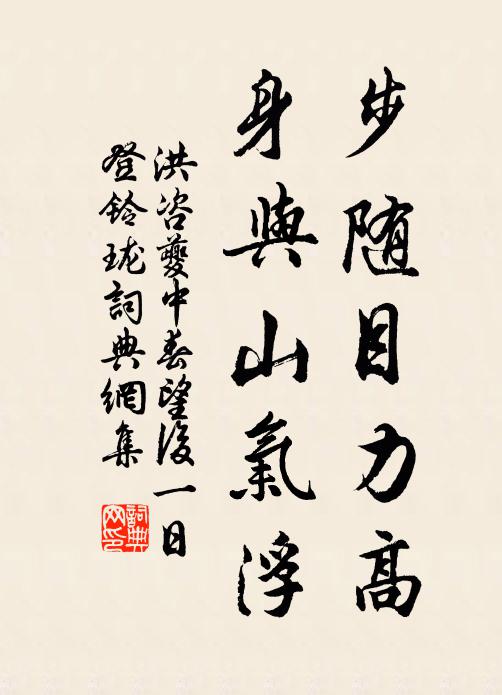 步随目力高
身與山氣浮
洪咨夔中春望後一日
登鈴瓏詞典網集
詞典
网印